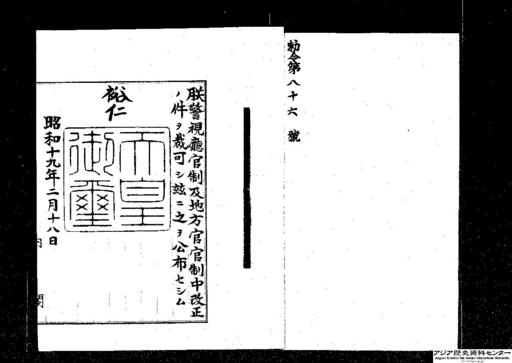 勅令第八十六號
朕警視廳官制及地方官官制中改正
ノ件ヲ裁可シ玆ニ之ヲ公布セシム
裕仁
天皇御璽
昭和十九年二月十八日
内閣
アジア歴史資料センター
Japan Center for Asian Historical Records